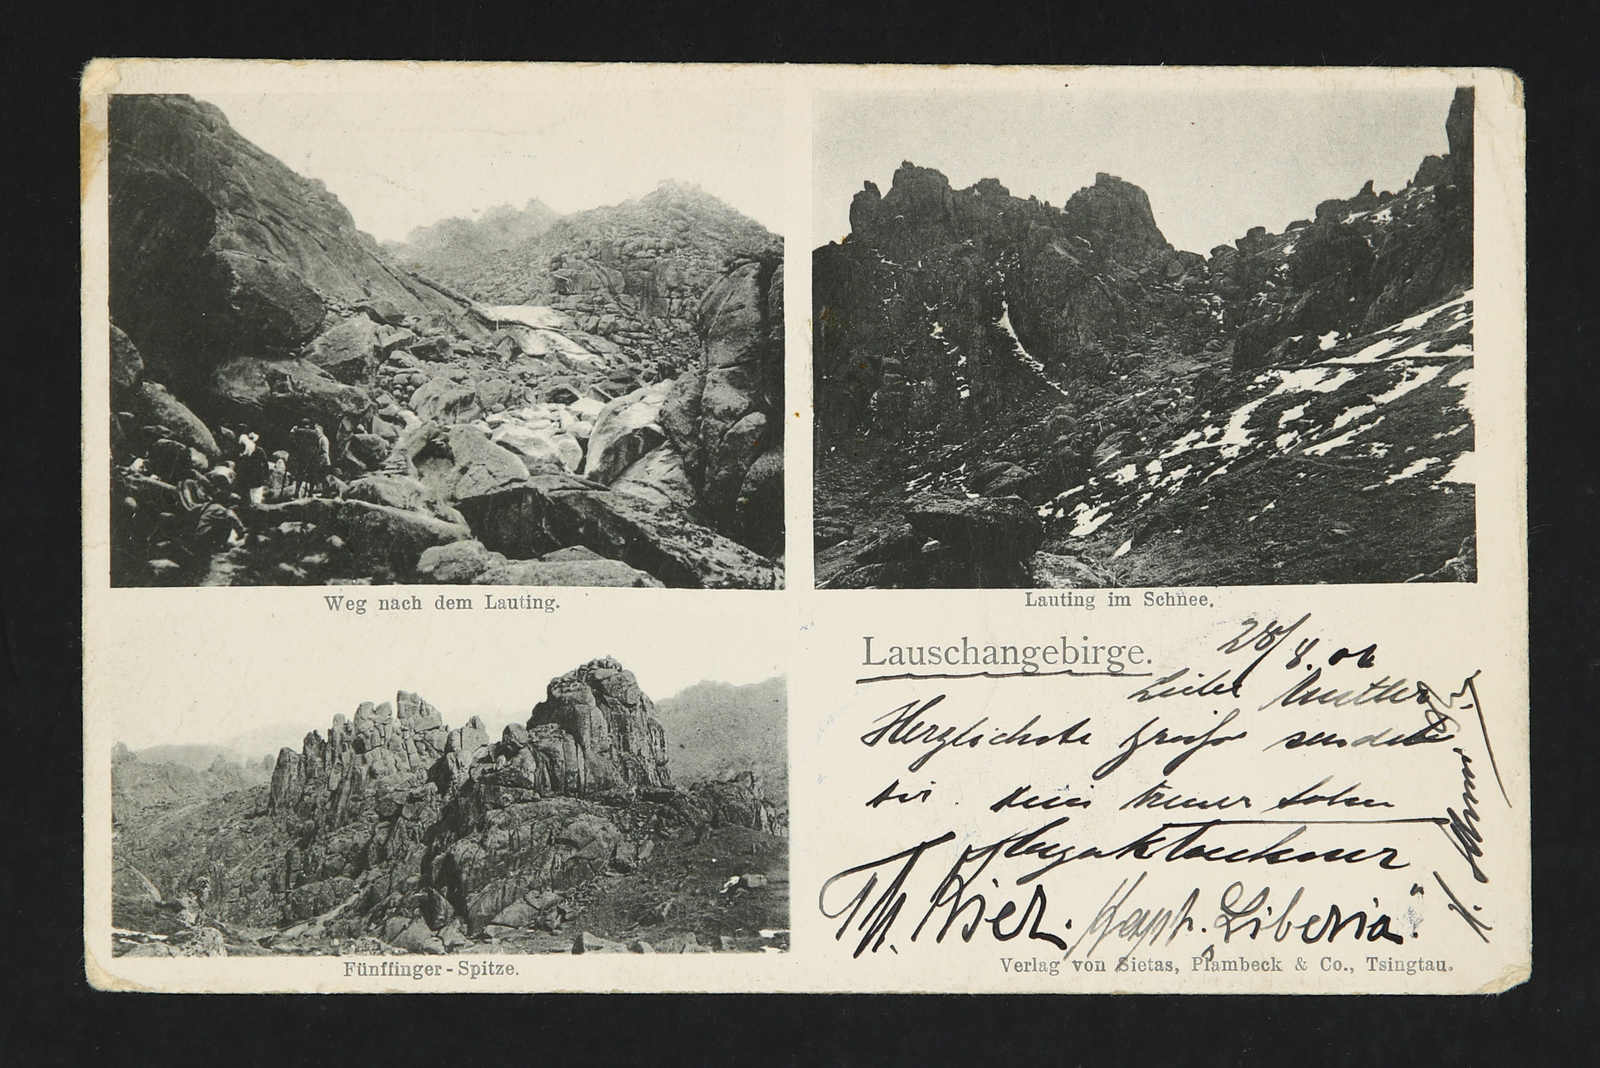 Weg nach dem Lauting.
Lauting im Schnee.
Fünffinger-Spitze.
Lauschangebirge.
28/8. 06
Liebe Mutter
Herzlichste Grüße sendet
dir. dein treuer Sohn
Th. Kier. Kapt. Liberia."
Verlag von Sietas, Plambeck & Co., Tsingtau.